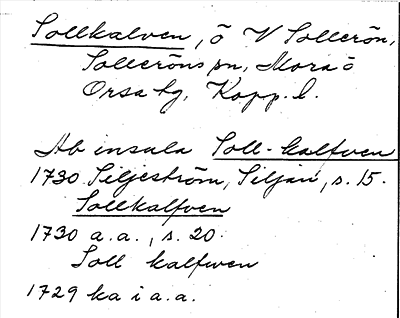 Sollkalven, ö V Sollerön,
Solleröns sn, Mora o
Orsa tg, Kopp. l.
Ab insula Soll-kalfven
1730 Siljeström, Siljan, s. 15.
Sollkalfven
1730 a.a., s. 20.
Soll kalfwen
1729 ka i a.a.